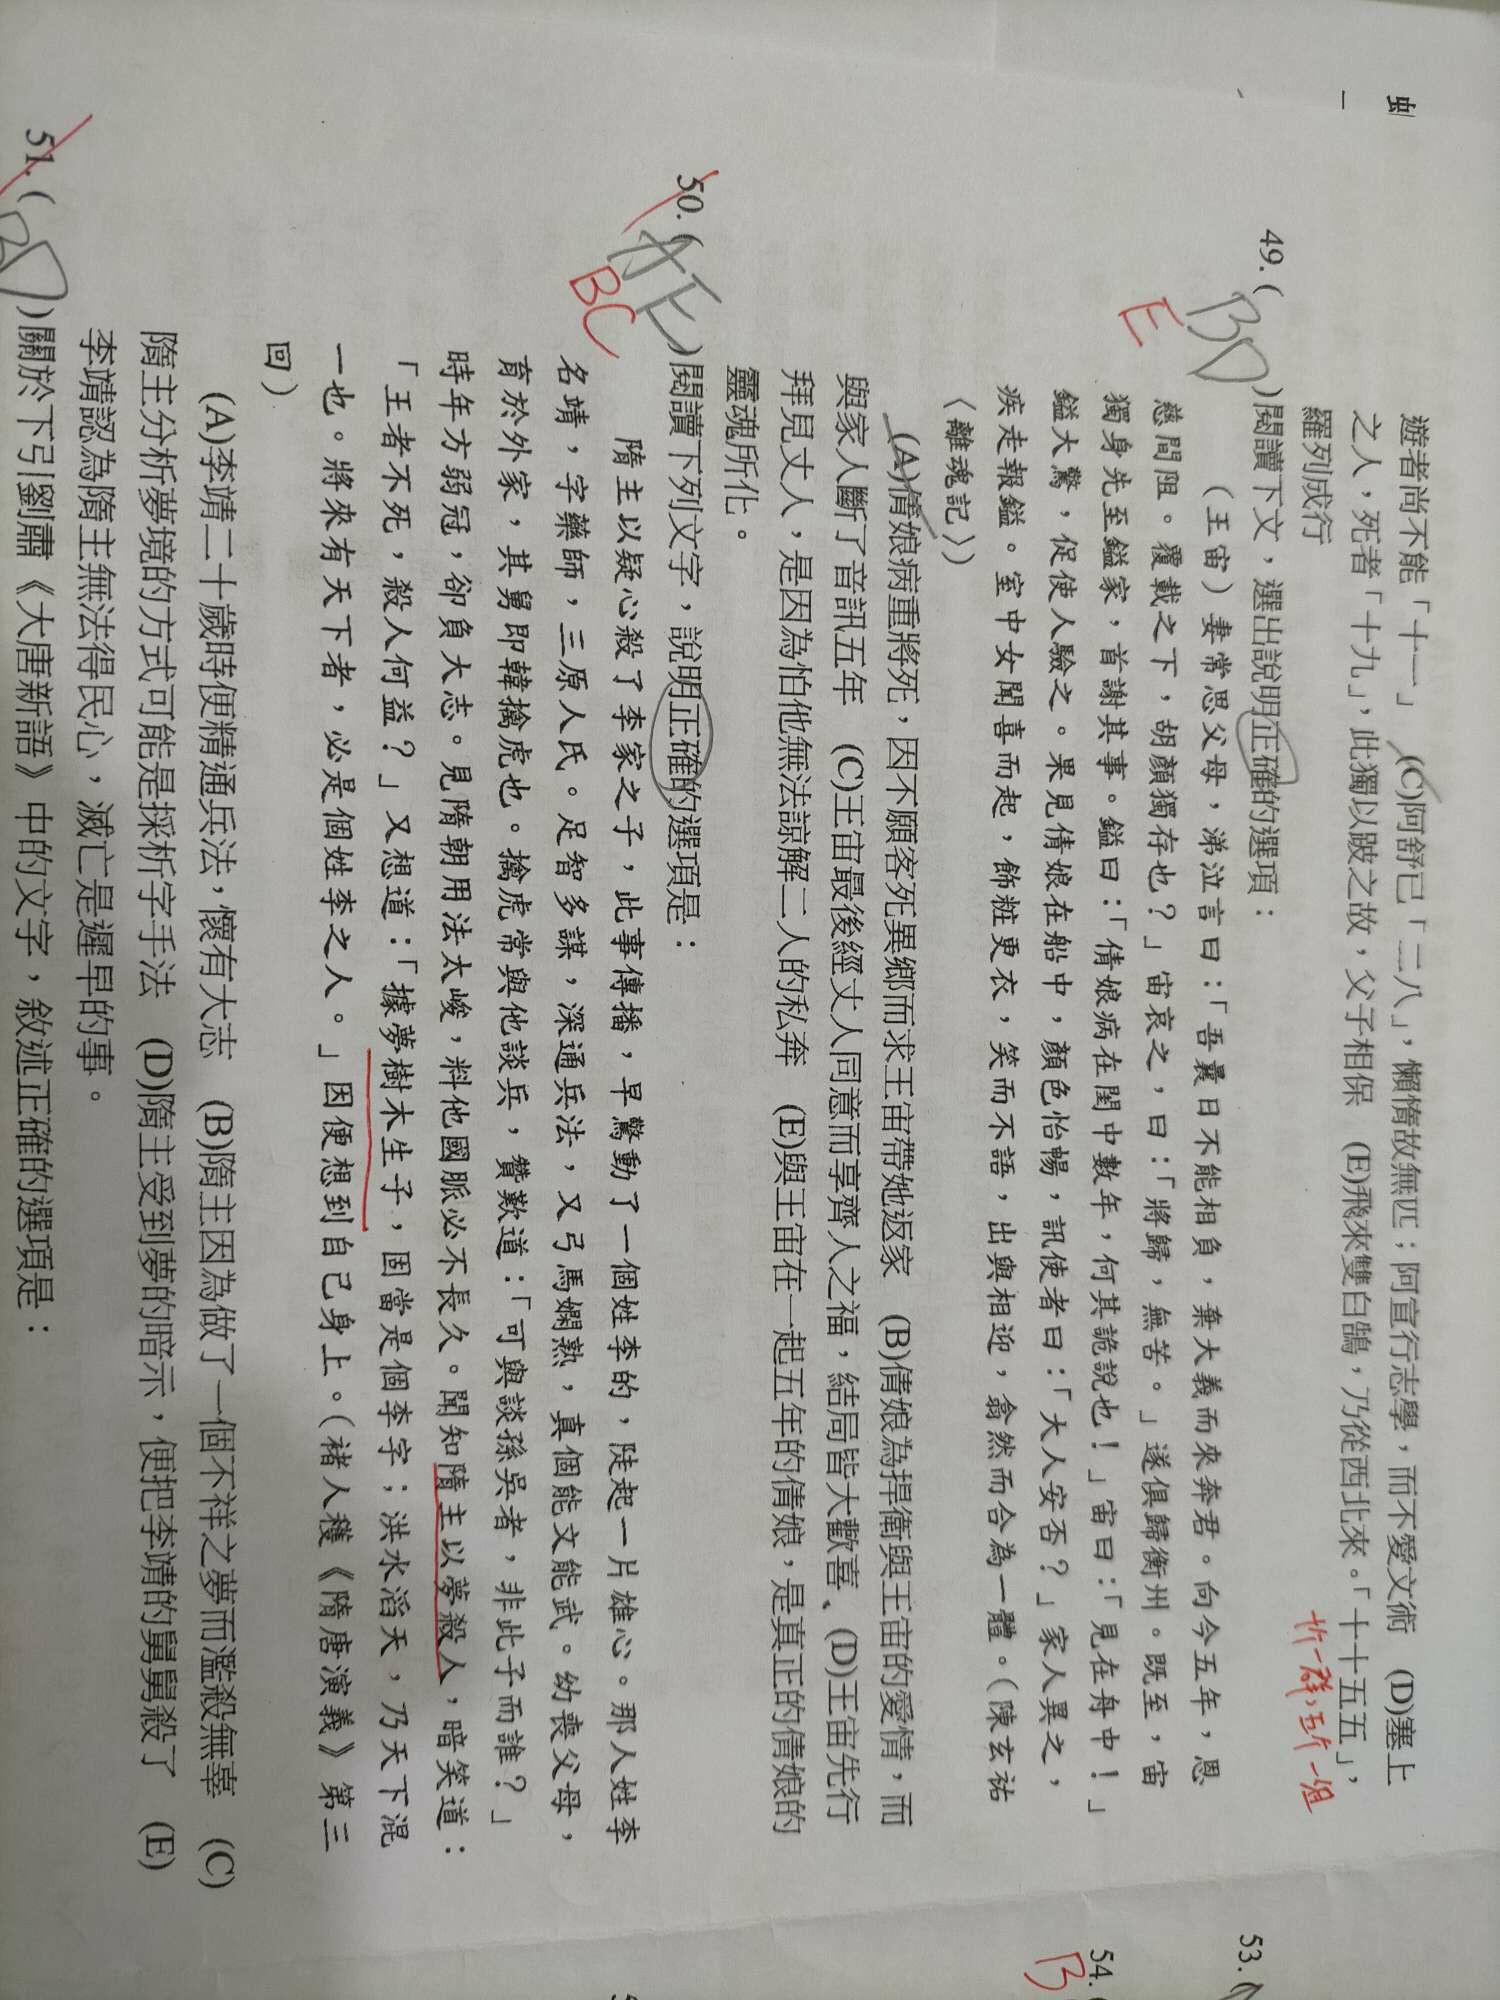 遊者尚不能「十一」 (C)阿舒已「二八」，懶惰故無匹；阿宣行志學，而不愛文術 (D)塞上
之人，死者「十九」，此獨以跛之故，父子相保 (E)飛來雙白鵠，乃從西北來。「十十五五」，
羅列成行
十一群，五個一組
49. ( BD )閱讀下文，選出說明正確的選項：
E
（王宙）妻常思父母，涕泣言曰：「吾曩日不能相負，棄大義而來奔君。向今五年，恩
慈間阻。覆載之下，胡顏獨存也？」宙哀之，曰：「將歸，無苦。」遂俱歸衡州。既至，宙
獨身先至鎰家，首謝其事。鎰曰：「倩娘病在閨中數年，何其詭說也！」宙曰：「見在舟中！」
鎰大驚，促使人驗之。果見倩娘在船中，顏色怡暢，訊使者曰：「大人安否？」家人異之，
疾走報鎰。室中女聞喜而起，飾粧更衣，笑而不語，出與相迎，翕然而合為一體。（陳玄祐
〈離魂記〉）
(A)倩娘病重將死，因不願客死異鄉而求王宙帶她返家 (B)倩娘為捍衛與王宙的愛情，而
與家人斷了音訊五年 (C)王宙最後經丈人同意而享齊人之福，結局皆大歡喜、(D)王宙先行
拜見丈人，是因為怕他無法諒解二人的私奔 (E)與王宙在一起五年的倩娘，是真正的倩娘的
靈魂所化。
50. ( AE )閱讀下列文字，說明正確的選項是：
BC
隋主以疑心殺了李家之子，此事傳播，早驚動了一個姓李的，陡起一片雄心。那人姓李
名靖，字藥師，三原人氏。足智多謀，深通兵法，又弓馬嫻熟，真個能文能武。幼喪父母，
育於外家，其舅即韓擒虎也。擒虎常與他談兵，贊歎道：「可與談孫吳者，非此子而誰？」
時年方弱冠，卻負大志。見隋朝用法太峻，料他國脈必不長久。聞知隋主以夢殺人，暗笑道：
「王者不死，殺人何益？」又想道：「據夢樹木生子，固當是個李字；洪水滔天，乃天下混
一也。將來有天下者，必是個姓李之人。」因便想到自己身上。（褚人穫《隋唐演義》第三
回）
(A)李靖二十歲時便精通兵法，懷有大志 (B)隋主因為做了一個不祥之夢而濫殺無辜 (C)
隋主分析夢境的方式可能是採析字手法 (D)隋主受到夢的暗示，便把李靖的舅舅殺了 (E)
李靖認為隋主無法得民心，滅亡是遲早的事。
51. ( )關於下引劉肅《大唐新語》中的文字，敘述正確的選項是：
53. (
54. (
B